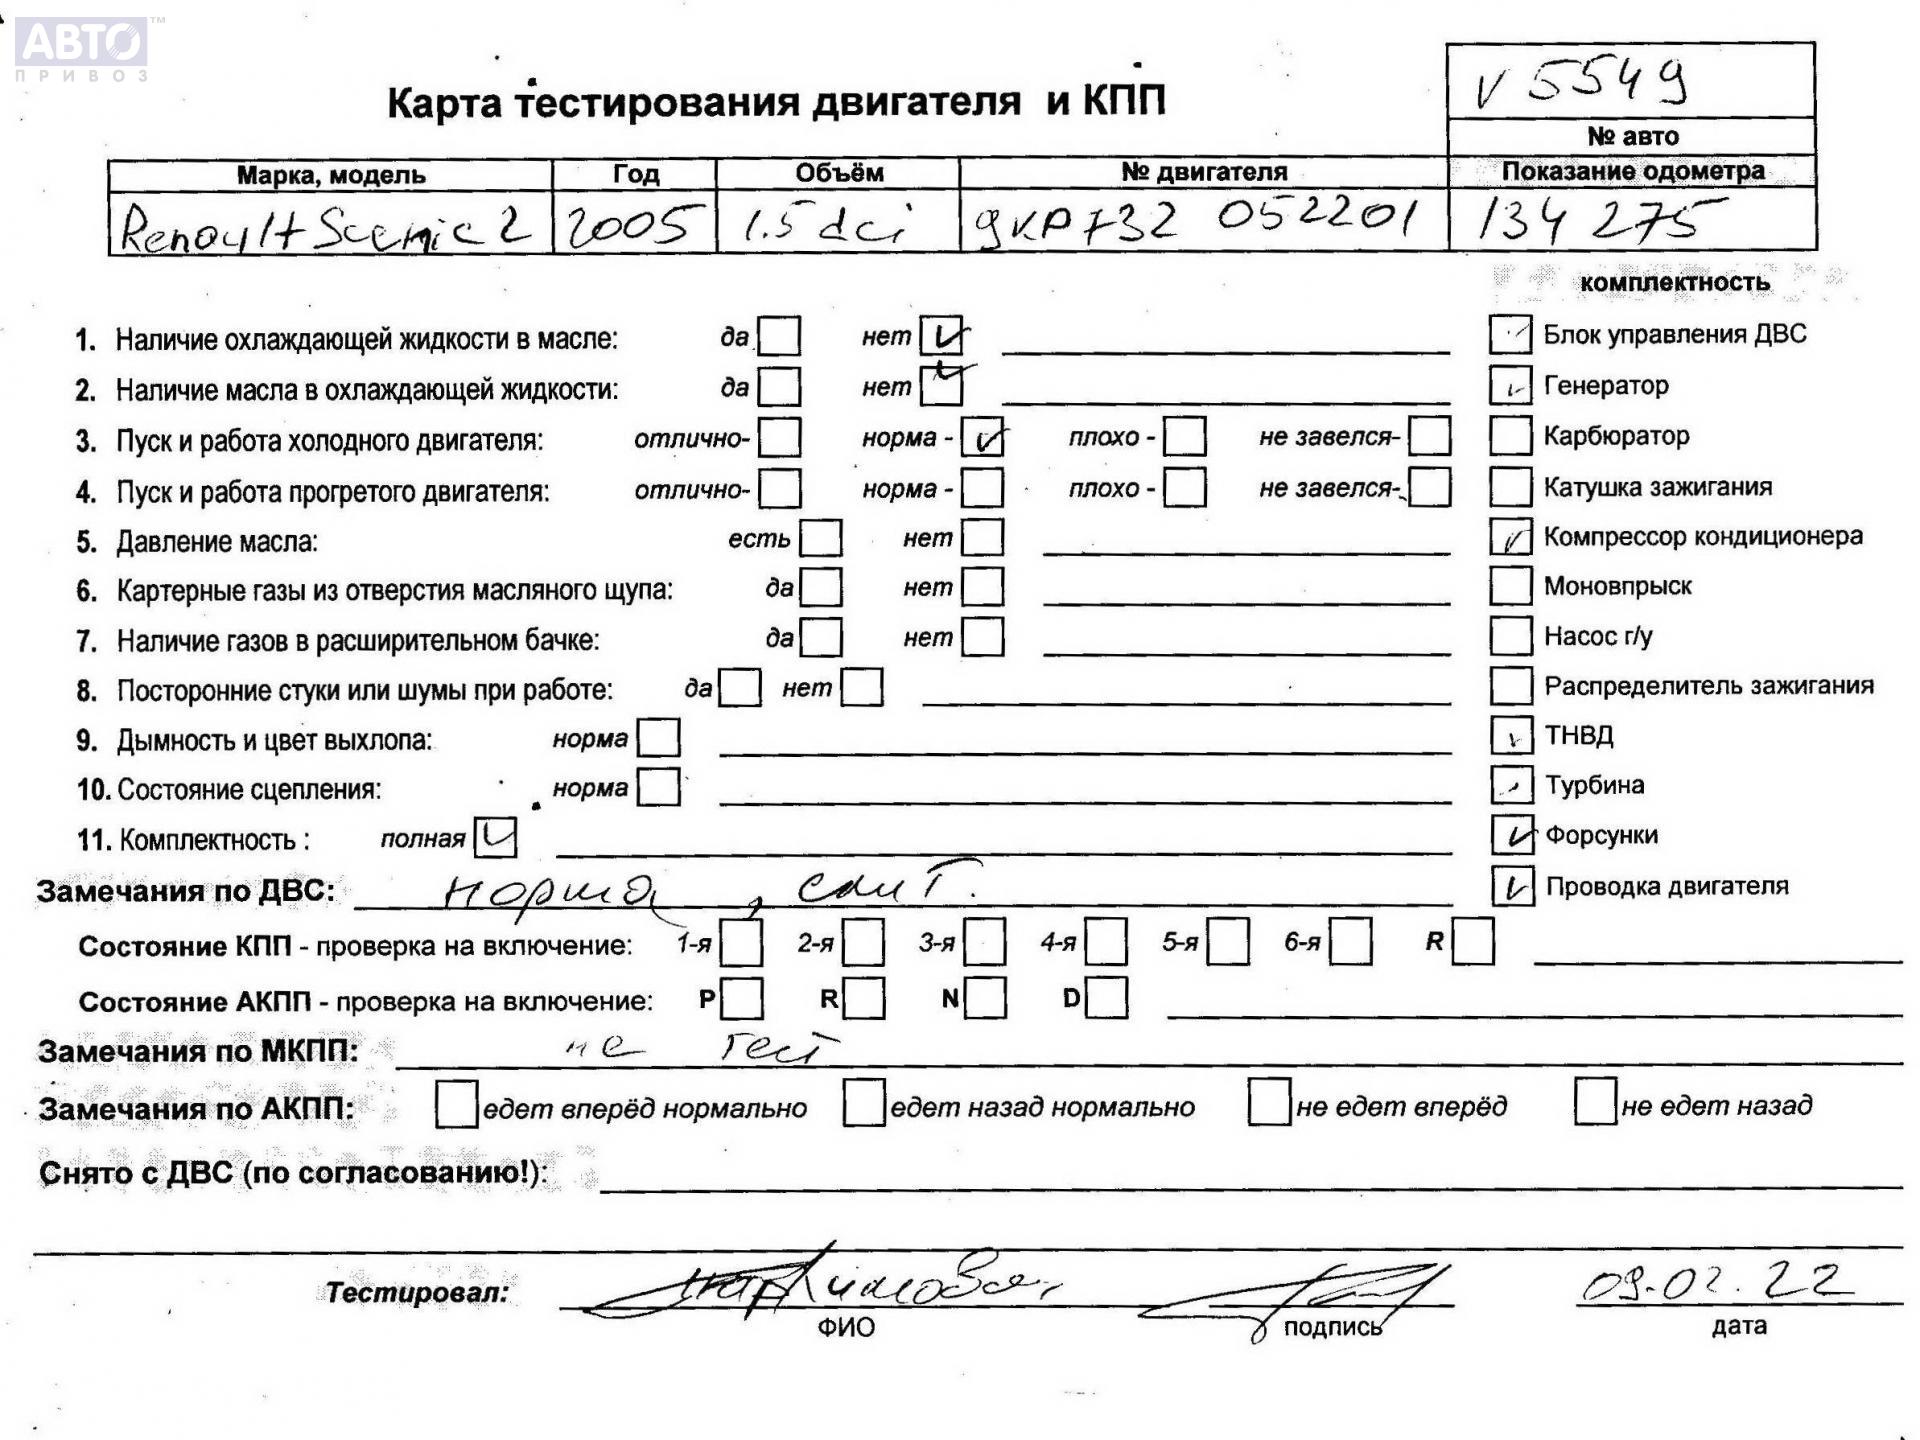 АВТО ™
ПРИВОЗ
V 5549
Карта тестирования двигателя и КПП
№ авто
Марка, модель Год Объём № двигателя Показание одометра
Renault Scenic 2 2005 1.5 dci 9KP732 052201 134 275
комплектность
1. Наличие охлаждающей жидкости в масле: да нет Блок управления ДВС
2. Наличие масла в охлаждающей жидкости: да нет Генератор
3. Пуск и работа холодного двигателя: отлично- норма - плохо - не завелся- Карбюратор
4. Пуск и работа прогретого двигателя: отлично- норма - плохо - не завелся- Катушка зажигания
5. Давление масла: есть нет Компрессор кондиционера
6. Картерные газы из отверстия масляного щупа: да нет Моновпрыск
7. Наличие газов в расширительном бачке: да нет Насос г/у
8. Посторонние стуки или шумы при работе: да нет Распределитель зажигания
9. Дымность и цвет выхлопа: норма ТНВД
10. Состояние сцепления: норма Турбина
11. Комплектность : полная Форсунки
Замечания по ДВС: норма, Проводка двигателя
Состояние КПП - проверка на включение: 1-я 2-я 3-я 4-я 5-я 6-я R
Состояние АКПП - проверка на включение: P R N D
Замечания по МКПП: не тест
Замечания по АКПП: едет вперёд нормально едет назад нормально не едет вперёд не едет назад
Снято с ДВС (по согласованию!):
Тестировал: 09.02.22
ФИО подпись дата